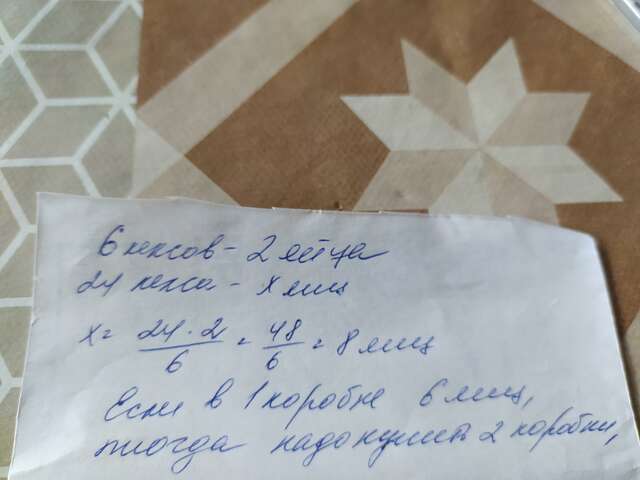 6 кексов - 2 яйца
24 кекса - x яиц
x = 24 · 2 / 6 = 48 / 6 = 8 яиц
Если в 1 коробке 6 яиц,
тогда надо купить 2 коробки,